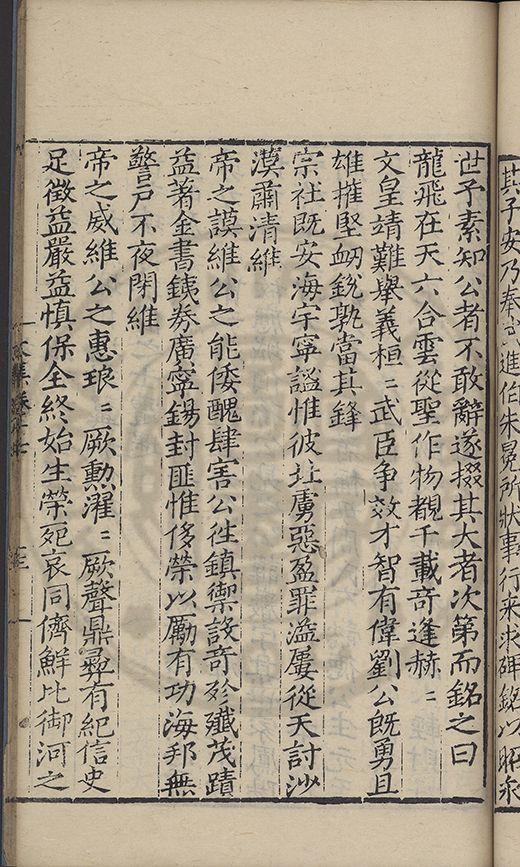 其子安乃奉 進 朱冕所狀事行来求碑銘以昭永
世予素知公者不敢辭遂掇其大者次第而銘之曰
龍飛在天六合雲從聖作物覩千載奇逢赫〻
文皇靖難舉義桓〻武臣争效才智有偉劉公既勇且
雄摧堅衂銳孰當其鋒
宗社既安海宇寧謐惟彼 虜惡盈罪溢屢從天討沙
漠肅清維
帝之謨維公之能倭醜肆害公徃鎮禦設奇殄殱茂蹟
益著金書鐵劵廣寧錫封匪惟侈榮以勵有功海邦無
警戸不夜閉維
帝之威維公之惠琅〻厥勲濯〻厥聲鼎彛有紀信史
足徵益嚴益慎保全終始生榮死哀同儕鮮比御河之